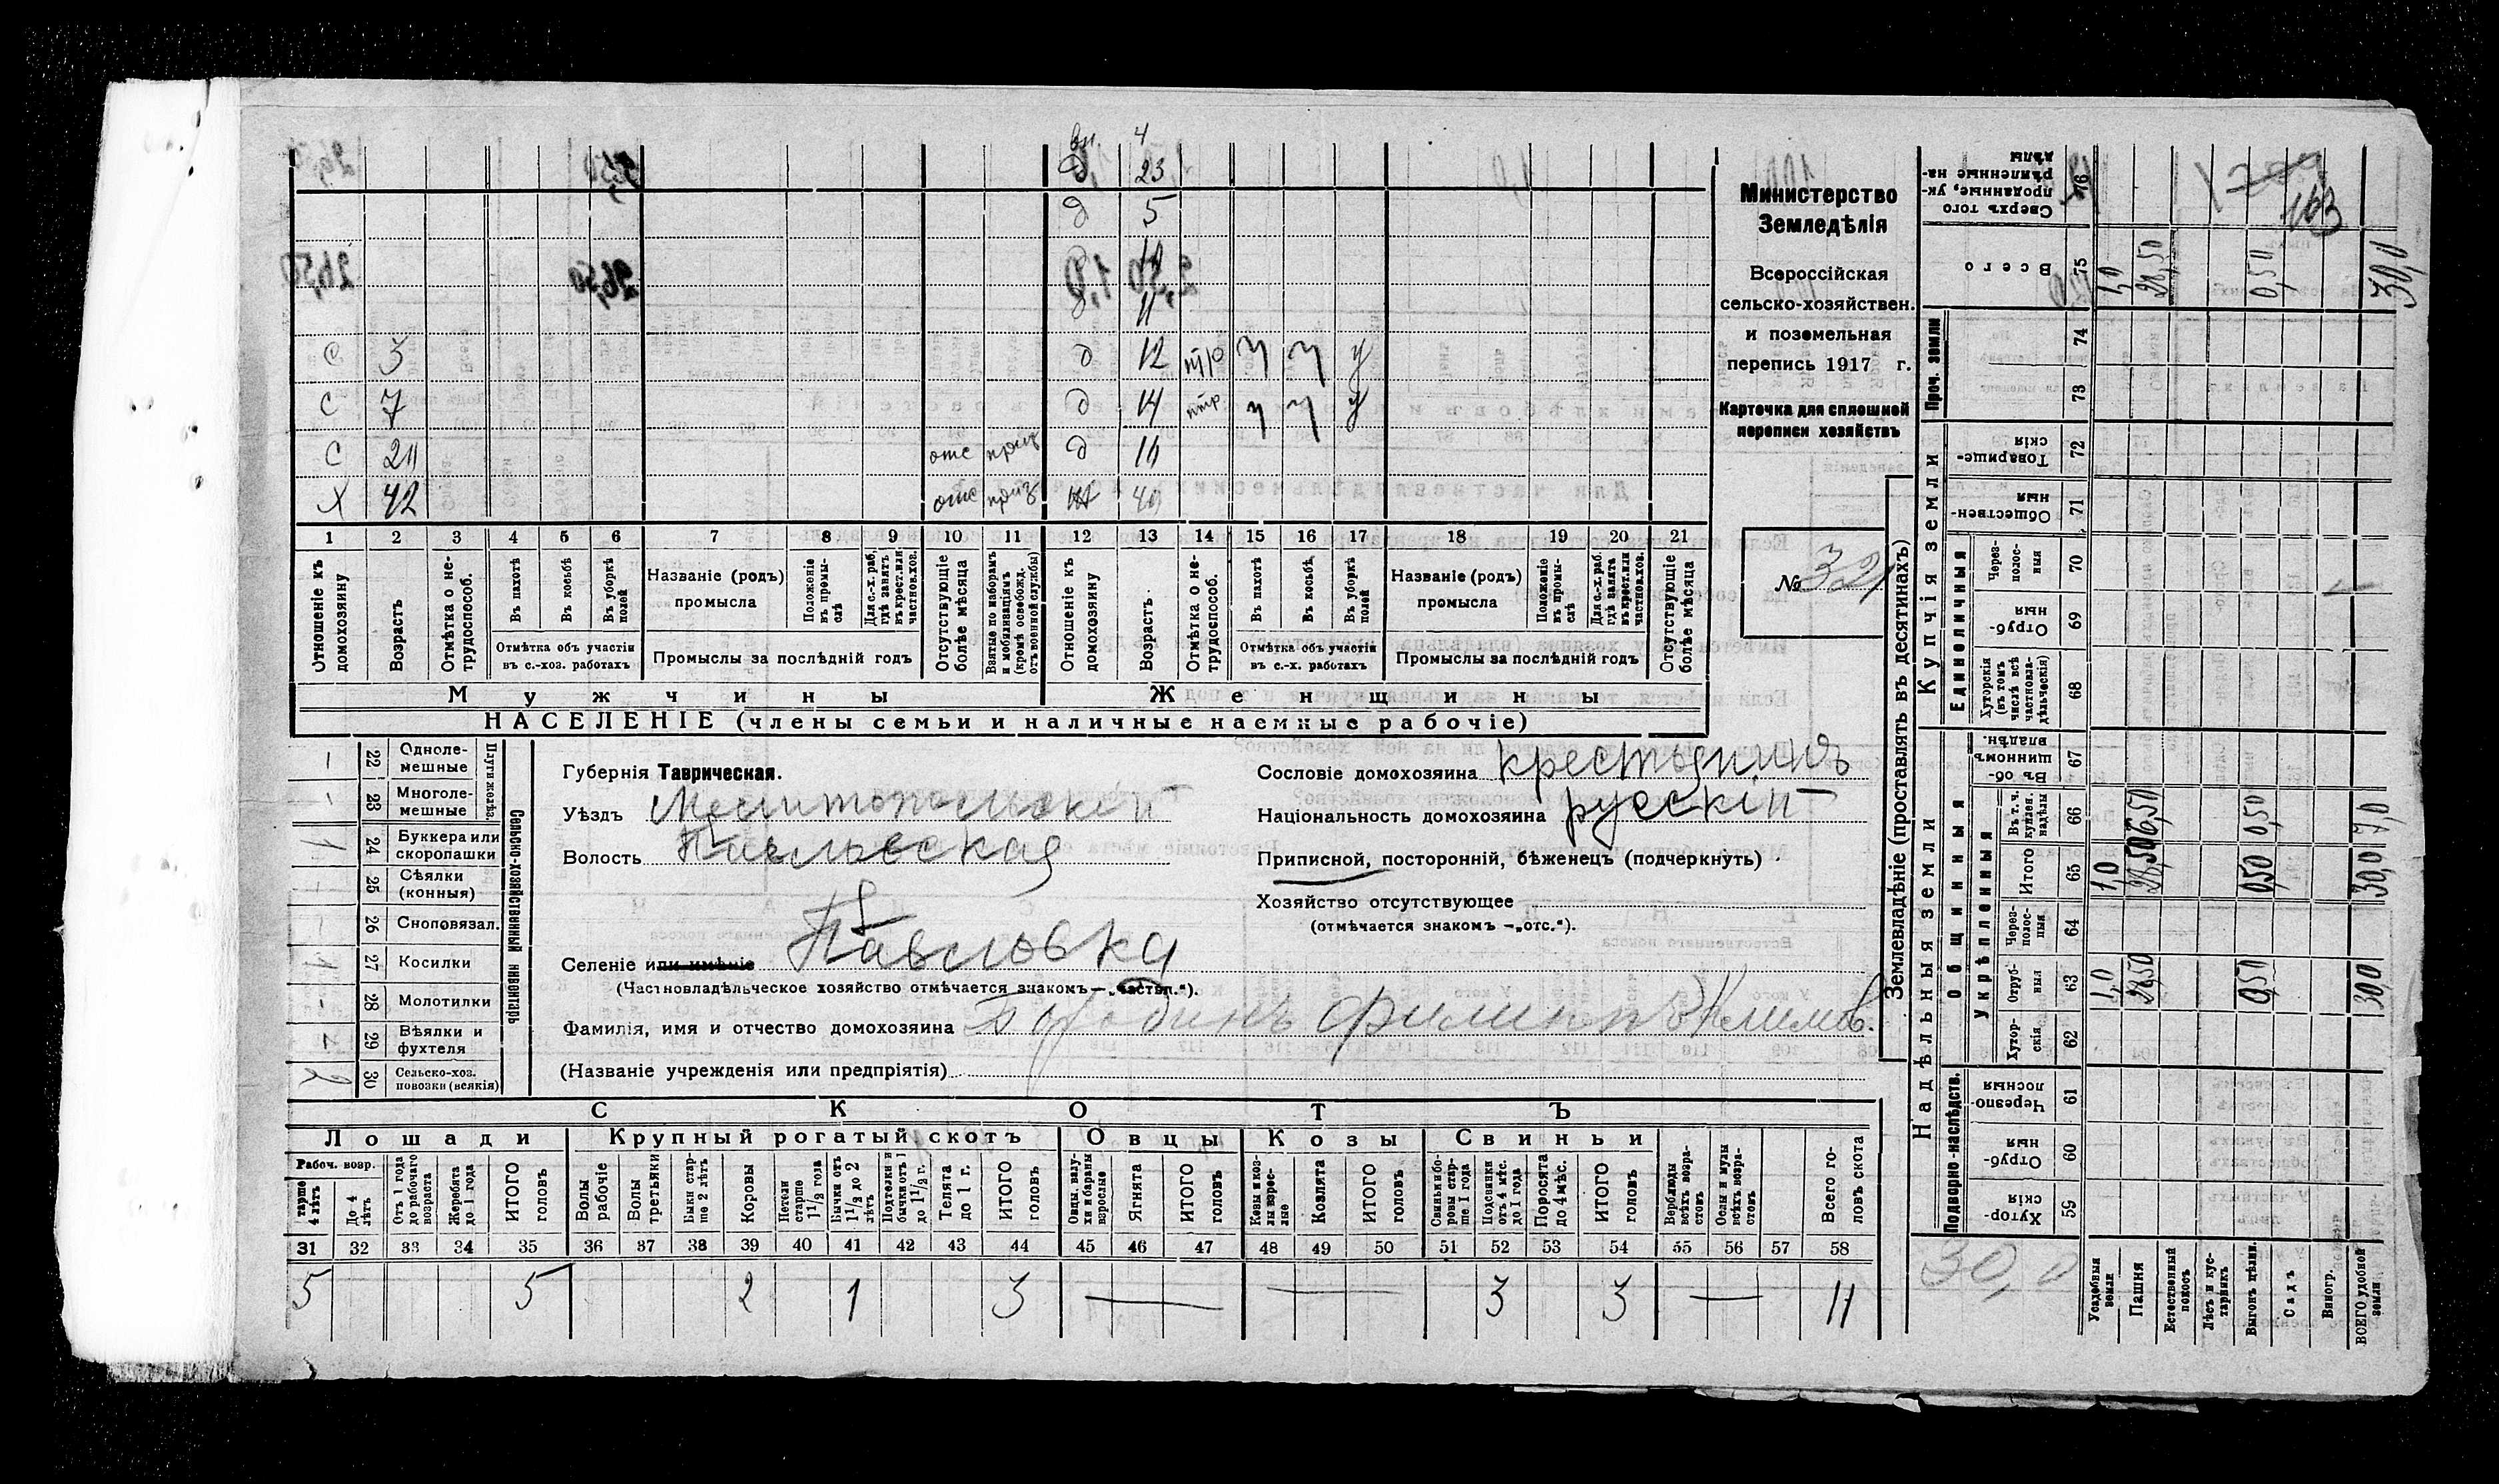 вн. 4
д 23
д 5
д 10
д 11
С 3 д 12 нтр ч ч у
С 7 д 14 нтр ч ч у
С 21 отс приз д 16
Х 42 отс приз 40
1 2 3 4 5 6 7 8 9 10 11 12 13 14 15 16 17 18 19 20 21
Отношеніе къ домохозяину
Возрастъ
Отмѣтка о не-трудоспособ.
Въ пахотѣ
Въ косьбѣ
Въ уборкѣ полей
Отмѣтка объ участіи въ с.-хоз. работахъ
Названіе (родъ) промысла
Положеніе въ промы-слѣ
Для с.-х. раб. гдѣ занятъ въ крест. или частнов. хоз.
Промыслы за послѣдній годъ
Отсутствующіе болѣе мѣсяца
Взятые по наборамъ и мобилизаціямъ (кромѣ освобожд. отъ военной службы)
Отношеніе къ домохозяину
Возрастъ.
Отмѣтка о не-трудоспособ.
Въ пахотѣ
Въ косьбѣ
Въ уборкѣ полей
Отмѣтка объ участіи въ с.-х. работахъ
Названіе (родъ) промысла
Положеніе въ промы-слѣ
Для с.-х. раб. гдѣ занята въ крест. или частнов. хоз.
Промыслы за послѣдній годъ
Отсутствующіе болѣе мѣсяца
Мужчины Женщины
НАСЕЛЕНІЕ (члены семьи и наличные наемные рабочіе)
Министерство
Земледѣлія
Всероссійская
сельско-хозяйствен.
и поземельная
перепись 1917 г.
Карточка для сплошной
переписи хозяйствъ
№ 321
Сельско-хозяйственный инвентарь
Плуги желѣз.
22 Одноле-мешные –
23 Многоле-мешные –
24 Буккера или скоропашки 1
25 Сѣялки (конныя) –
26 Сноповязал. –
27 Косилки 1
28 Молотилки –
29 Вѣялки и фухтеля –
30 Сельско-хоз. повозки (всякія) 2
Губернія Таврическая.
Уѣздъ Мелитопольскій
Волость Павловская
Селеніе или имѣніе Павловка
(Частновладѣльческое хозяйство отмѣчается знакомъ—„частвл.").
Фамилія, имя и отчество домохозяина Бородинъ Филиппъ Климов.
(Названіе учрежденія или предпріятія)
Сословіе домохозяина крестьянинъ
Національность домохозяина русскій
Приписной, посторонній, бѣженец (подчеркнуть)
Хозяйство отсутствующее
(отмѣчается знакомъ —„отс.").
СКОТЪ
Лошади Крупный рогатый скотъ Овцы Козы Свиньи
Рабоч. возр.
тарше 4 лѣтъ
До 4 лѣтъ
Отъ 1 года до рабочаго возраста
Жеребята до 1 года
ИТОГО головъ
Волы рабочіе
Волы третьяки
Быки стар-ше 2 лѣтъ
Коровы
Нетели старше 1 1/2 года
Бычки отъ 1 1/2 до 2 лѣтъ
Подтелки и бычки отъ 1 до 1 1/2 г.
Телята до 1 г.
ИТОГО головъ
Овцы, валу-хи и бараны взрослые
Ягнята
ИТОГО головъ
Козы и коз-лы взрос-лые
Козлята
ИТОГО головъ
Свиньи и бо-ровы стар-ше 1 года
Подсвинки отъ 4 мѣс. до 1 года
Поросята до 4 мѣс.
ИТОГО головъ
Верблюды всѣхъ возра-стовъ
Ослы и мулы всѣхъ возра-стовъ
Всего го-ловъ скота
31 32 33 34 35 36 37 38 39 40 41 42 43 44 45 46 47 48 49 50 51 52 53 54 55 56 57 58
5 5 2 1 3 — — 3 3 — 11
Землевладѣніе (проставлять въ десятинахъ)
Надѣльныя земли
Купчія земли
Проч. земли
Общинныя
Укрѣпленныя
Единоличныя
Подворно-наслѣдств.
Сверхъ того проданныя, ук-рѣпленные на-дѣлы 76
163
Всего 75 1,0 28,50 0,50 30,0
74
73
Товарище-скія 72
Обществен-ныя 71
Через-полос-ныя 70
Отруб-ныя 69
Хуторскія (въ томъ числѣ всѣ частновла-дѣльческія) 68
Въ об-щинномъ владѣн. 67
Въ т. ч. куплен. надѣлы 66 6,50 0,50 7,0
Итого 65 1,0 28,50 0,50 30,0
Через-полос-ныя 64
Отруб-ныя 63 1,0 28,50 0,50 30,0
Хутор-скія 62
Черезпо-лосныя 61
Отруб-ныя 60
Хутор-скія 59
30,0
Усадебныя земли
Пашня
Естественный покосъ
Лѣсъ и кус-тарникъ
Выгонъ цѣлин.
Садъ
Виногр.
ВСЕГО удобной земли